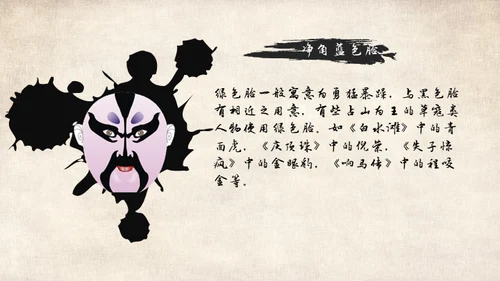 净角蓝色脸
绿色脸一般寓意为勇猛暴躁，与黑色脸
有相近之用意，有些占山为王的草寇类
人物使用绿色脸，如《白水滩》中的青
面虎，《庆顶珠》中的倪荣，《失子惊
疯》中的金眼豹，《响马传》中的程咬
金等。